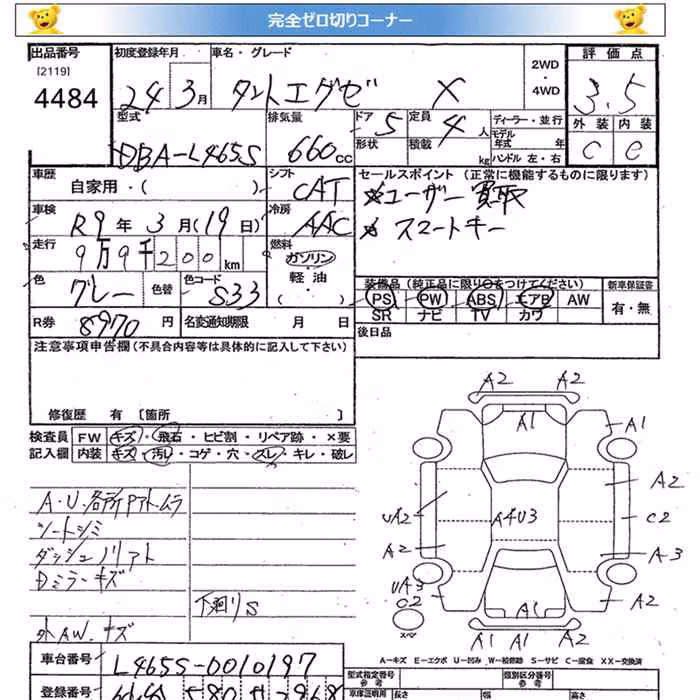 完全ゼロ切りコーナー
出品番号
[2119]
4484
初度登録年月
24 3月
車名・グレード
タントエグゼ X
2WD
・
4WD
評価点
3.5
型式
DBA-L465S
排気量
660cc
ドア 5
形状
定員 4人
積載 kg
ディーラー・並行
モデル
年式 年
ハンドル 左・右
外装 内装
C C
車歴
自家用・( )
シフト
CAT
セールスポイント (正常に機能するものに限ります)
※ユーザー買取
※スマートキー
車検
R9年3月(19日)
冷房
AAC
走行
9万9千200km
燃料
ガソリン
・
軽・油
・( )
色
グレー
色替
色コード
S33
装備品(純正品に限り○をつけてください)
PS PW ABS エアB AW
SR ナビ TV カワ
新車保証書
有・無
R券
8970円
名変通知期限 月 日
後日品
注意事項申告欄(不具合内容等は具体的に記入して下さい)
修復歴 有 [箇所 ]
検査員 FW キズ・飛石・ヒビ割・リペア跡・×要
記入欄 内装 キズ・汚レ・コゲ・穴・スレ・キレ・破レ
A・U・各所
シートシミ
Dミラーキズ
下廻りS
外AW.キズ
A2 A2
A1
A1
A2
UA2
A4U3
C2
A2
A-3
UA3
C2
A2
A1
スペア
A1 A1 A2
A-キズ E-エクボ U-凹み W-補修跡 S-サビ C-腐食 XX-交換済
車台番号
L465S-0010197
登録番号
580
型式指定番号
参考
類別区分番号
参考
車庫証明用
長さ